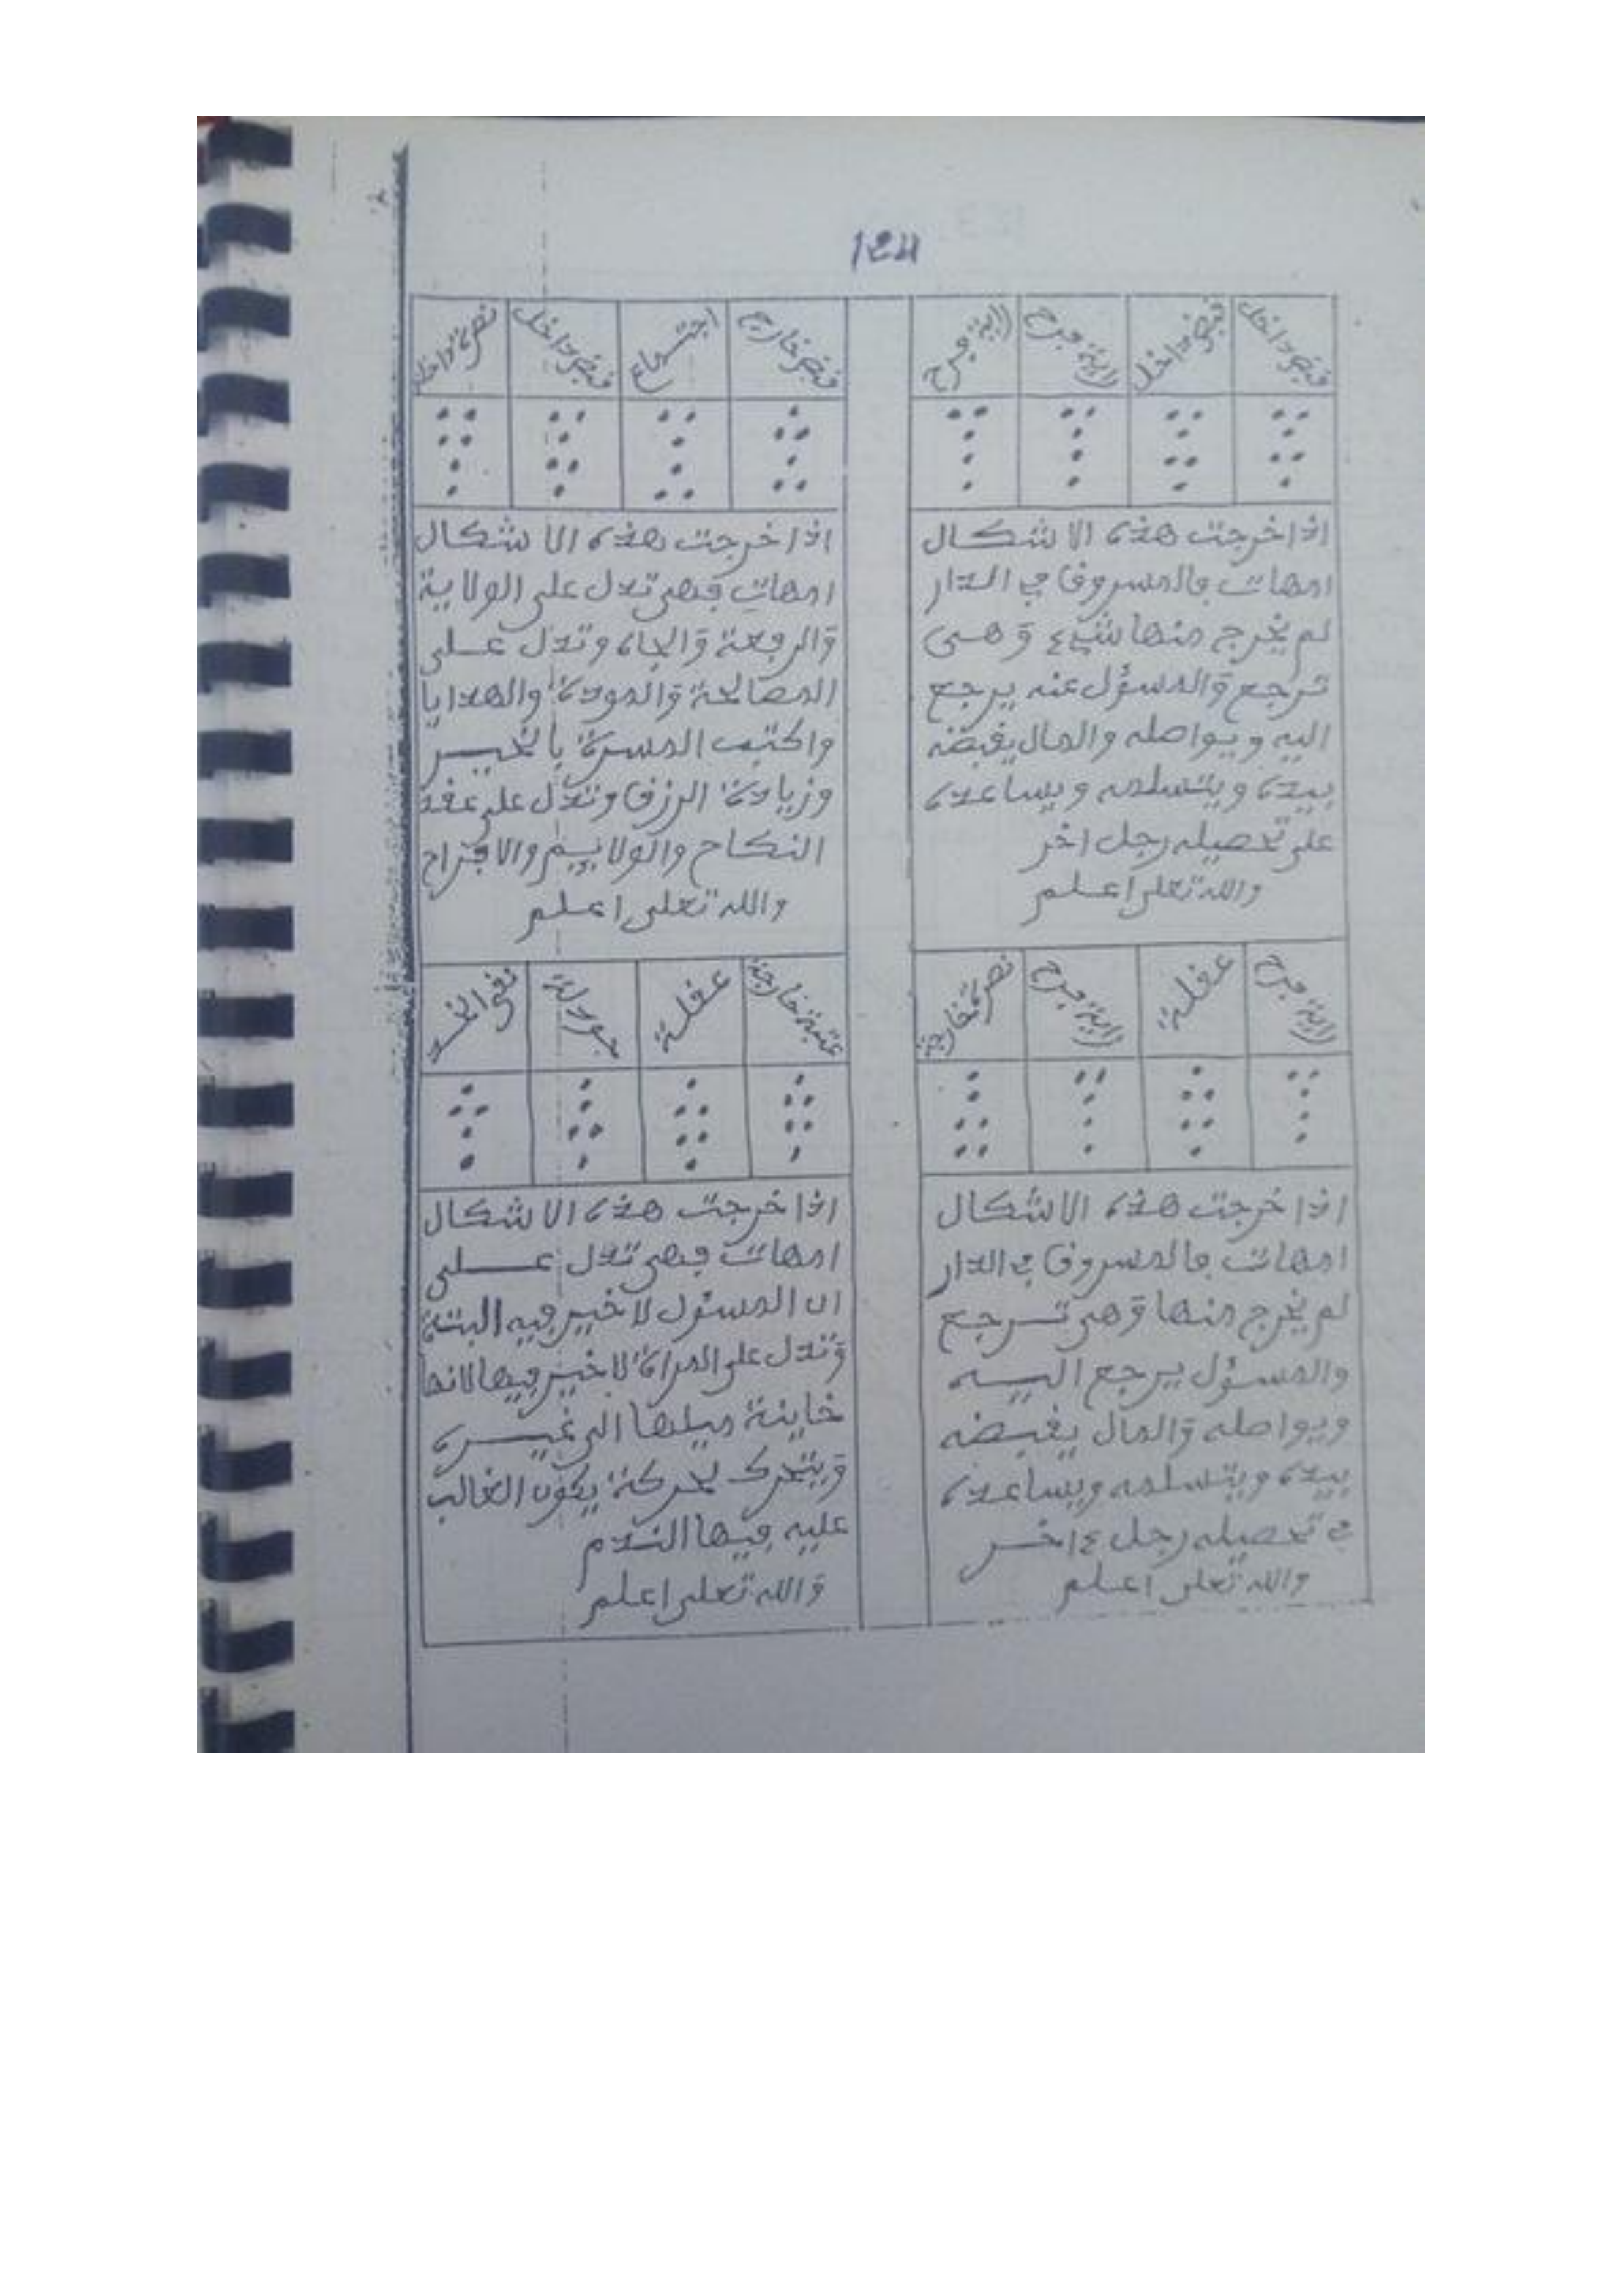 124
قبض داخل
قبض داخل
راية فرح
راية فرح
اذا خرجت هذه الاشكال
امهات فالمسروق في الدار
لم يخرج منها شيء وهي
ترجع والمسؤل عنه يرجع
اليه ويواصله والمال يقبضه
بيده ويتسلمه ويساعده
على تحصيله رجل اخر
والله تعلى اعلم
قبض خارج
اجتماع
قبض داخل
نصرة داخلة
اذا خرجت هذه الاشكال
امهات فهى تدل على الولاية
والرفعة والجاه وتدل على
المصالحة والمودة والهدايا
واكتب المسرة بالخير
وزيادة الرزق وتدل على عقد
النكاح والولايم والافراح
والله تعلى اعلم
راية فرح
عقلة
راية فرح
نصرة خارجة
اذا خرجت هذه الاشكال
امهات فالمسروق في الدار
لم يخرج منها وهى ترجع
والمسؤل يرجع اليه
ويواصله والمال يقبضه
بيده ويتسلمه ويساعده
في تحصيله رجل ءاخر
والله تعلى اعلم
عتبة خارجة
عقلة
جودلة
نقي الخد
اذا خرجت هذه الاشكال
امهات فهى تدل على
ان المسئول لا خير فيه البتة
وتدل على المراة لا خير فيها لانها
خاينة ميلها الى غيره
ويتحرك بحركة يكون الغالب
عليه فيها الندم
والله تعلى اعلم